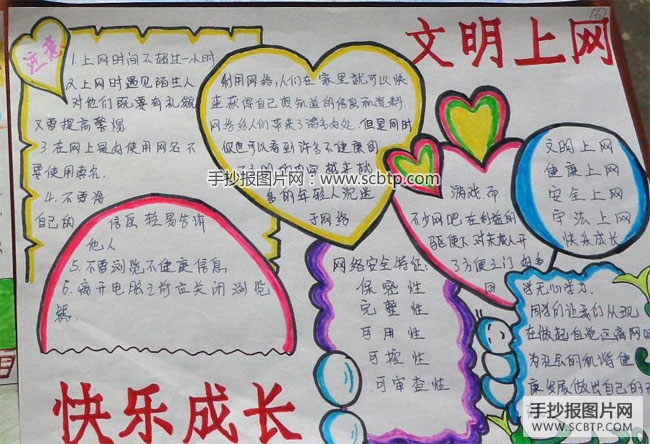 文明上网
注意
1.上网时间不超过一小时
2上网时遇见陌生人
对他们既要有礼貌
又要提高警惕
3在网上最好使用网名不
要使用真名
4.不要将
自己的 信息轻易告诉
他人
5.不要浏览不健康信息
6.离开电脑之前应关闭浏览
器
利用网络,人们在家里就可以快
速获得自己想知道的信息和资料
网络给人们带来了诸多好处.但是同时
你也可以看到许多不健康的
多的年轻人沉迷
于网络
手抄报图片网:www.scbtp.com
游戏.而
不少网吧在利益的
驱使下对未成人开
了方便之门
文明上网
健康上网
安全上网
守法上网
快乐成长
网络安全特征:
保密性
完整性
可用性
可控性
可审查性
学无心学习.
同学们让我们从现
在做起自觉远离网吧
为社会的和谐健
康发展做出自己的
快乐成长
手抄报图片网
WWW.SCBTP.COM